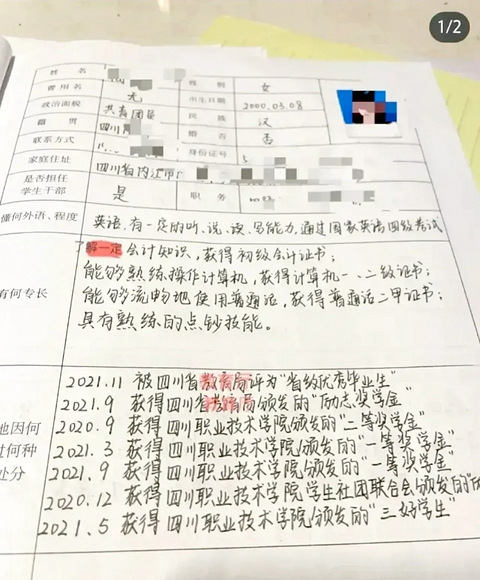 1/2
姓 名 性 别 女
曾用名 无 出生日期 2000.03.08
政治面貌 共青团员 民 族 汉
籍 贯 四川 婚 否 否
联系方式 身份证号 5
家庭住址 四川省内江市
是否担任
学生干部 是 职 务
懂何外语、程度 英语,有一定的听、说、读、写能力,通过国家英语四级考试
了解一定会计知识,获得初级会计证书;
能够熟练操作计算机,获得计算机一、二级证书;
有何专长 能够流畅地使用普通话,获得普通话二甲证书;
具有熟练的点钞技能。
2021.11 被四川省教育厅评为"省级优秀毕业生"
2021.9 获得四川省教育局颁发的"励志奖学金"
2020.9 获得四川职业技术学院颁发的"二等奖学金"
地因何 2021.3 获得四川职业技术学院颁发的"一等奖学金"
何种 2021.9 获得四川职业技术学院颁发的"一等奖学金"
处分 2020.12 获得四川职业技术学院学生社团联合会颁发的"
2021.5 获得四川职业技术学院颁发的"三好学生"